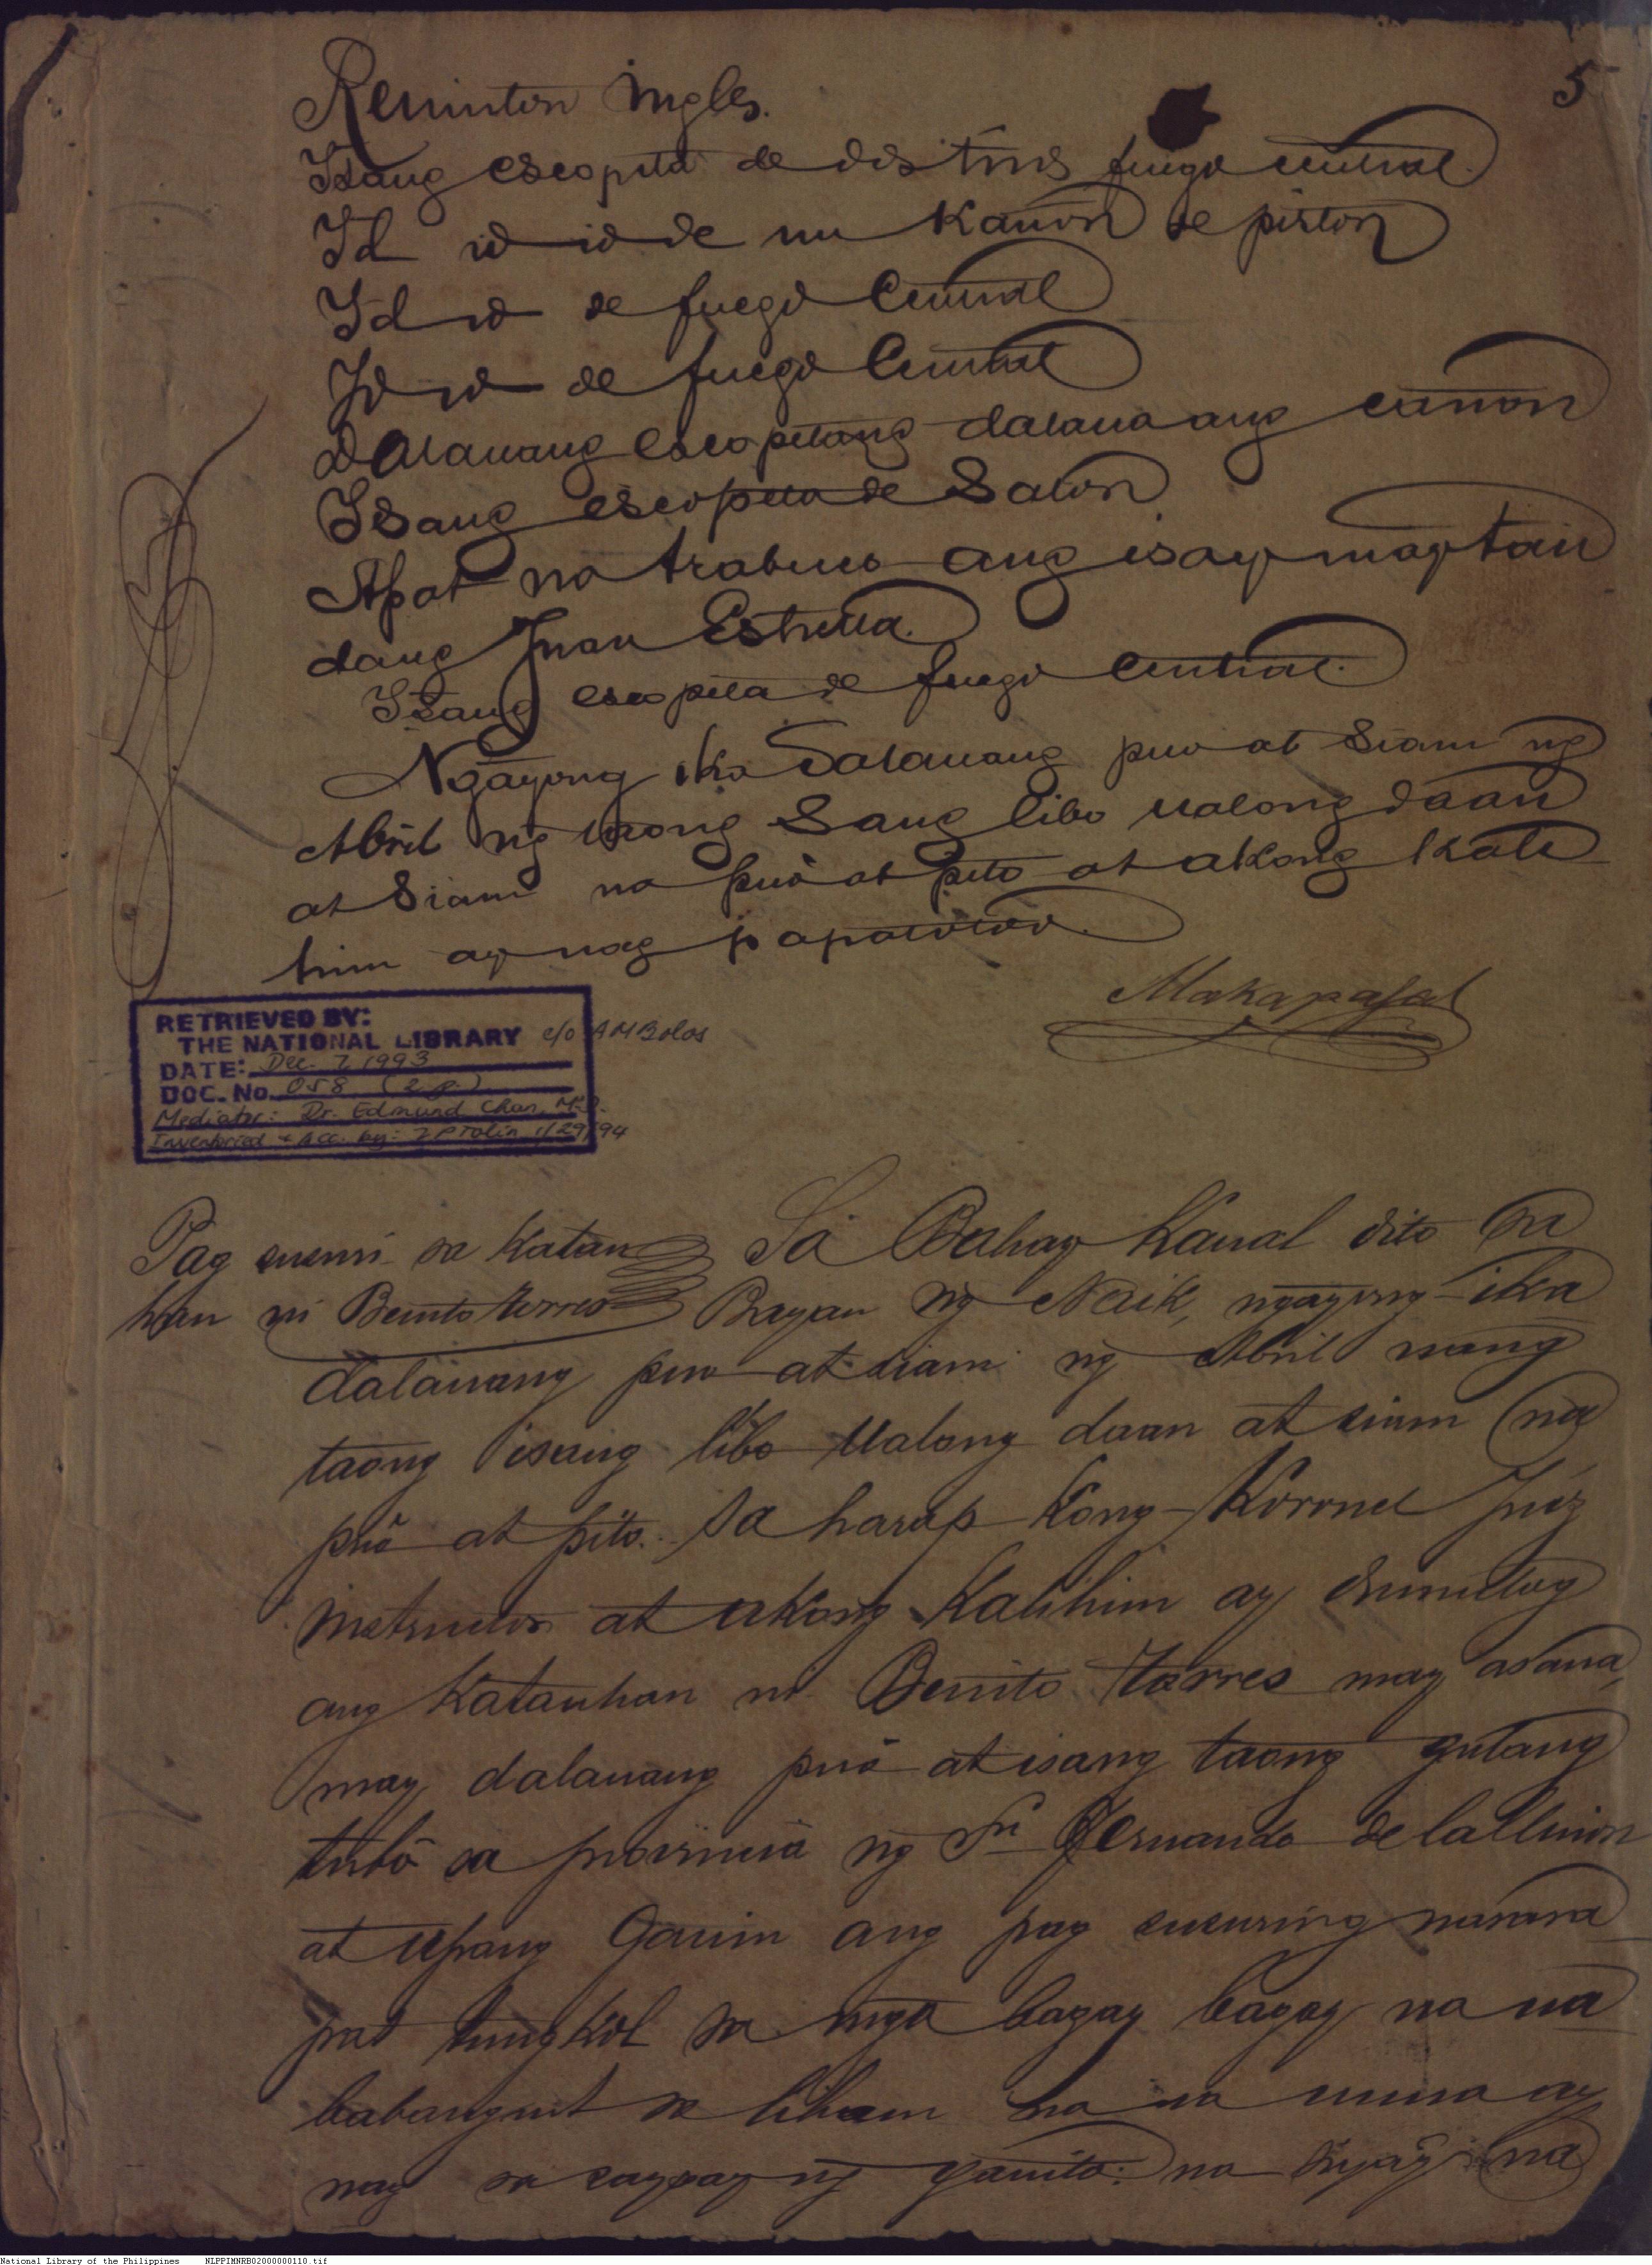 5
Reminton Ingles.
Isang escopeta de dos tiros fuego central.
Id id id de un Kañon de piston
Id id de fuego Central
Id id de fuego Central
Dalauang escopetang dalaua ang cañon
Isang escopeta de Salon
Apat na trabuco ang isay maytan
dang Juan Estrella.
Isang escopeta de fuego Central.
Ngayong ika dalauang puo at Siam ng
Abril ng taong Sang libo ualong daan
at Siam na può at pito at akong Kali
him ay nag papatotoo.
Makapagal
RETRIEVED BY:
THE NATIONAL LIBRARY c/o AMBolos
DATE: Dec. 7, 1993
DOC. No. 058 (2 p.)
Mediator: Dr. Edmund Chan, M.D.
Inventoried & Acc. by: 1/29/94
Pag susuri sa Katau
han ni Benito torres
Sa Bahay Kaual dito sa
Bayan ng Naik, ngayong ika
dalauang puo at siam ng Abril nang
taong isang libo Ualong daan at siam na
può at pito. Sa harap Kong Koronel Juez
instructor at akong Kalihim ay dumulog
ang Katauhan ni Benito torres may asaua,
may dalauang può at isang taong gulang
tubò sa provincia ng Sn Fernando de la Union
at upang Gauin ang pag susuring narara
pat tungkol sa mga bagay bagay na na
babanguit sa liham na na uuna ay
nag sa saysay ng ganito: na siyay na
National Library of the Philippines NLPPIMNRB02000000110.tif